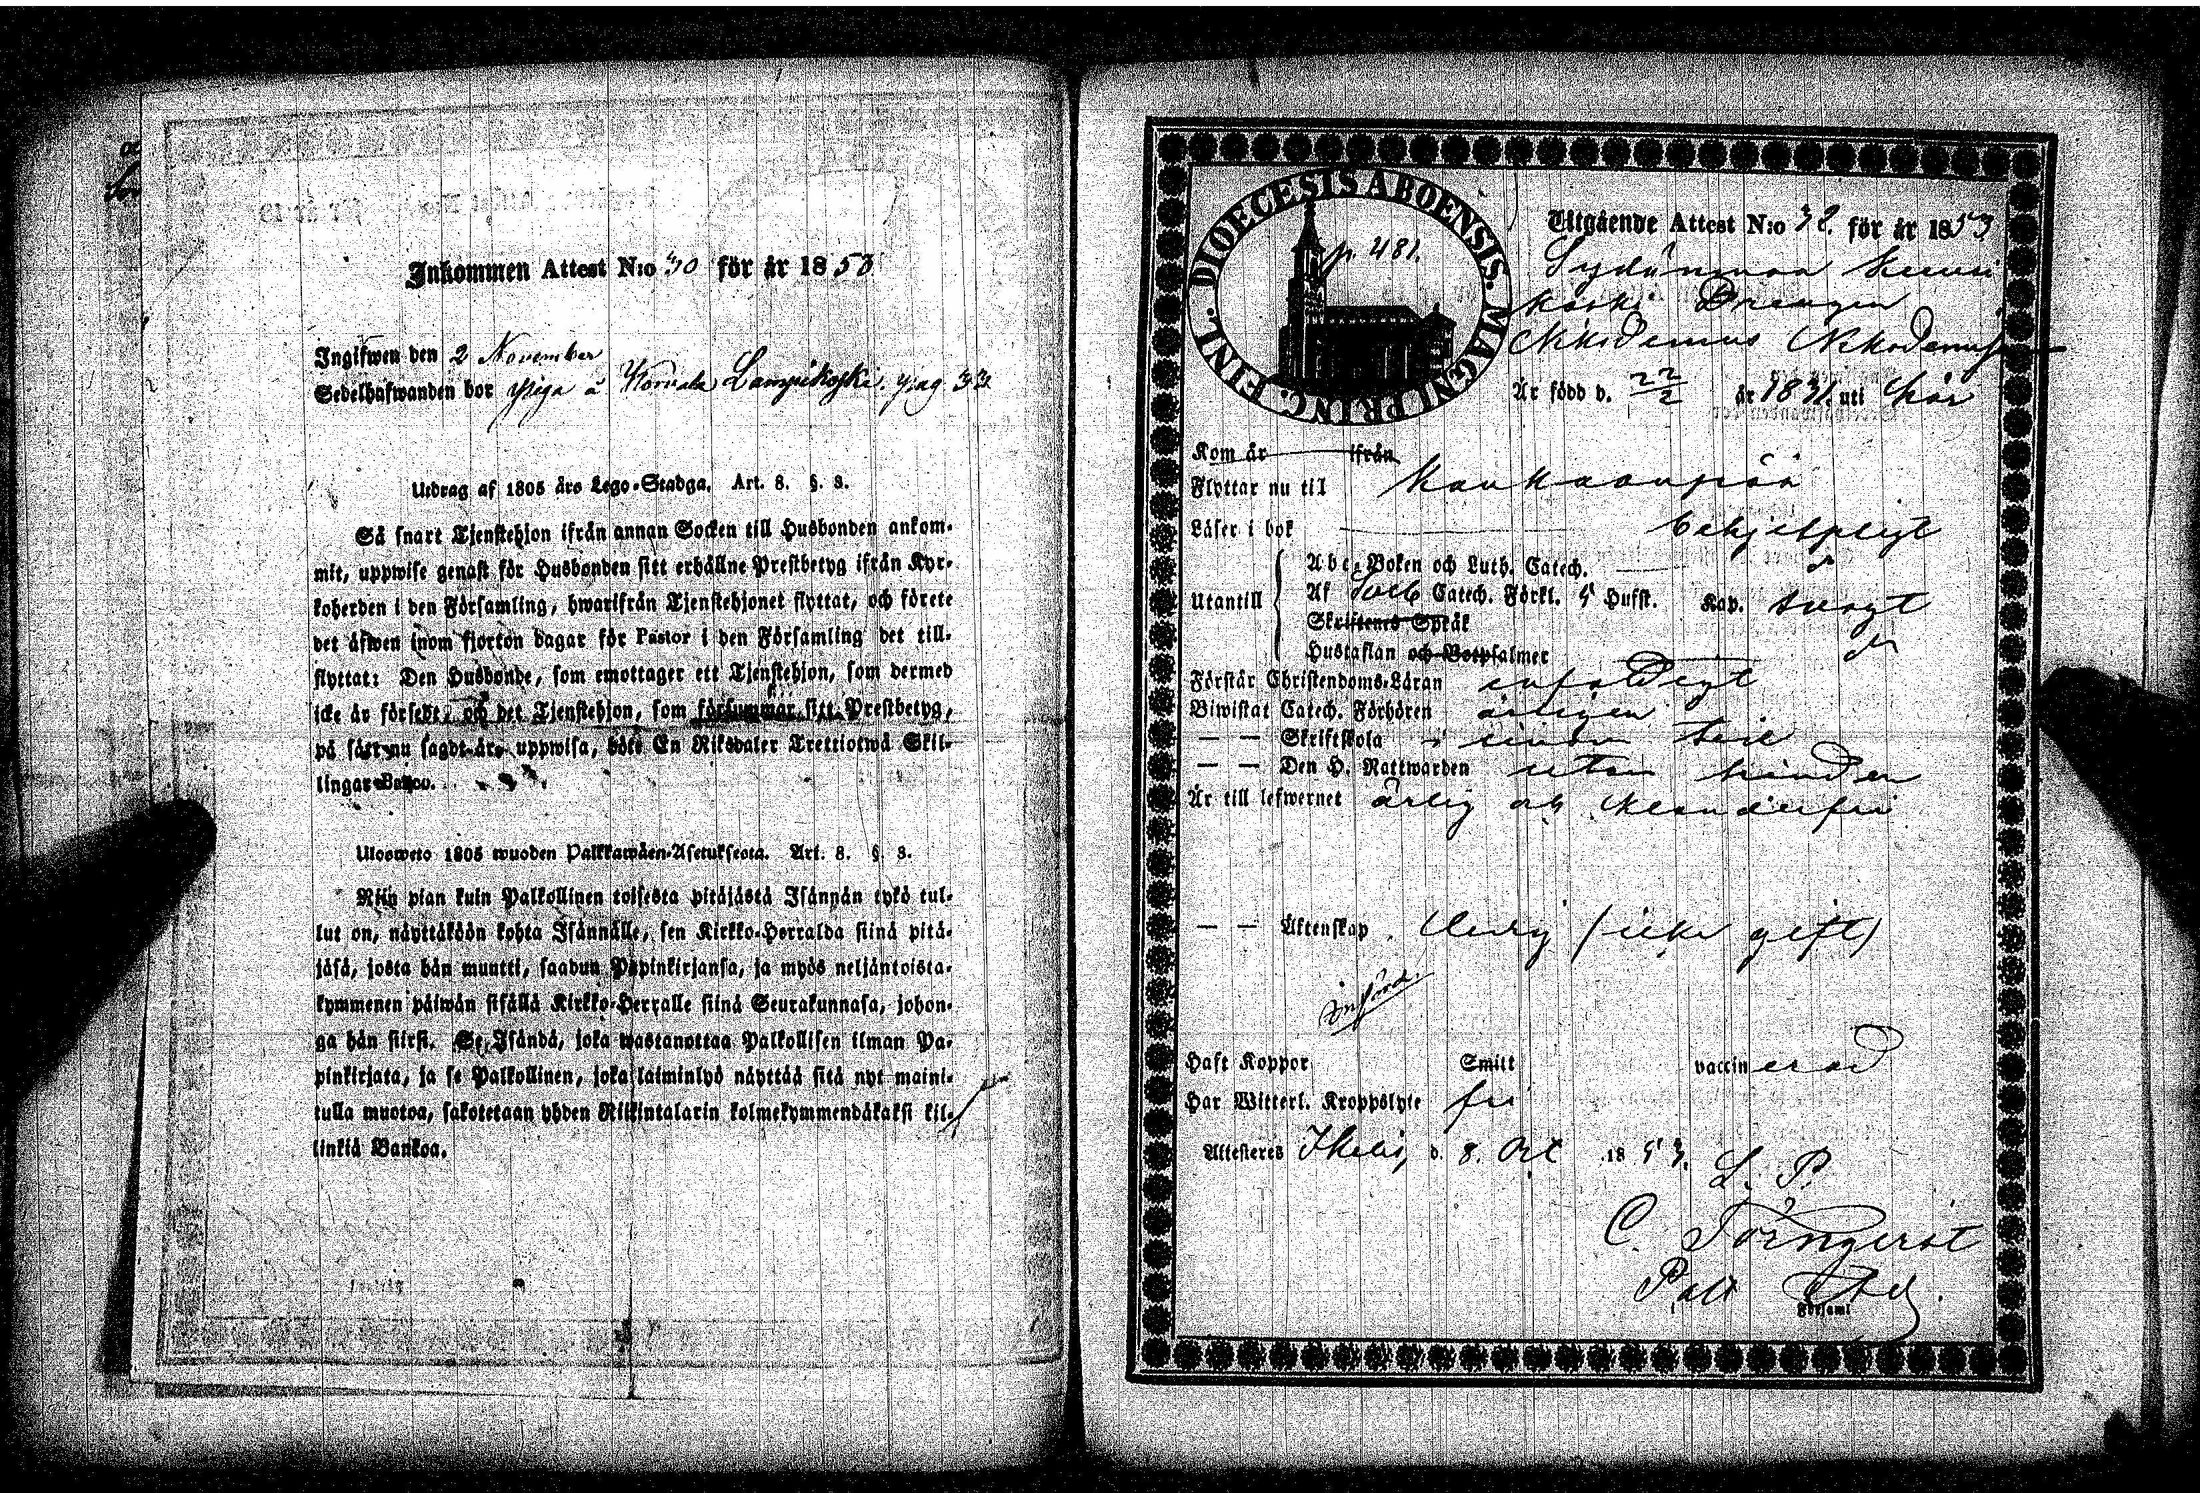 Inkommen Attest N:o 30 för år 1853
Ingifwen den 2 November
Sedelhafwanden bor piga å Lampikoski. pag 33
Utdrag af 1805 års Lego-Stadga. Art. 8. §. 3.
Så snart Tjenstehjon ifrån annan Socken till Husbonden ankom-
mit, uppwise genast för Husbonden sitt erhållne Prestbetyg ifrån Kyr-
koherden i den Församling, hwarifrån Tjenstehjonet flyttat, och förete
det äfwen inom fjorton dagar för Pastor i den Församling det till-
flyttat: Den Husbonde, som emottager ett Tjenstehjon, som dermed
icke är försedt, och det Tjenstehjon, som försummar sitt Prestbetyg,
på sätt nu sagdt är, uppwisa, böte En Riksdaler Trettiotwå Skil-
lingar Banco.
Ulosweto 1805 wuoden Palkkawäen-Asetuksesta. Art. 8. §. 3.
Niin pian kuin Palkollinen toisesta pitäjästä Isännän tykö tul-
lut on, näyttäköön kohta Isännälle, sen Kirkko-Herralda siinä pitä-
jäsä, josta hän muutti, saadun Papinkirjansa, ja myös neljäntoista-
kymmenen päiwän sisällä Kirkko-Herralle siinä Seurakunnasa, johon-
ga hän siirsi. Se Isändä, joka wastanottaa Palkollisen ilman Pa-
pinkirjata, ja se Palkollinen, joka laiminlyö näyttää sitä nyt maini-
tulla muotoa, sakotetaan yhden Riikintalarin kolmekymmendäkaksi kil-
linkiä Bankoa.
DIOECESIS ABOENSIS. MAGNI PRINC. FINL.
p. 481.
Utgående Attest N:o 32. för år 1853
Sydänmaa Kuusi
koski Drengen
Nikodemus Nikodemusson
Är född d. 22/2 år 1831. uti här
Kom år ifrån
Flyttar nu til Kankaanpää
Läser i bok behjelpligt
Utantill
Abc-Boken och Luth. Catech.
Af Sveb Catech. Förkl. 5 Hufst. Kap. svagt
Skriftenes Språk
Hustaflan och Botpsalmer
Förstår Christendoms-Läran enfaldigt
Biwistat Catech. Förhören årligen
— — Skriftskola
— — Den H. Nattwarden utan hinder
Är till lefwernet ärlig och klanderfri
— — Äktenskap. ledig (icke gift)
införd
Haft Koppor Smitt vaccinerad
Har Witterl. Kroppslyte fri
Attesteras Ikalis, d. 8. Oct 1853.
L. P.
C. Törnqvist
Past Adj.
Församl